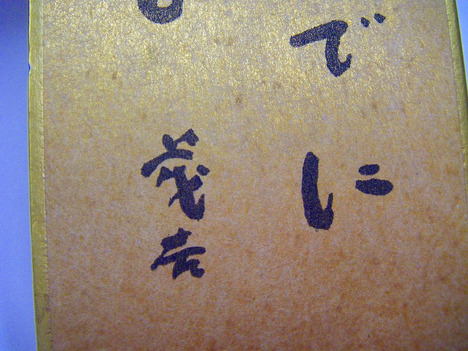 でに
茂吉